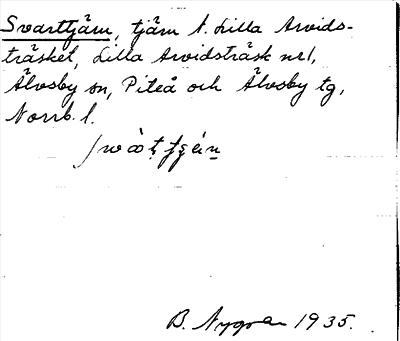 Svarttjärn, tjärn t. Lilla Arvids-
träsket, Lilla Arvidsträsk nr 1,
Älvsby sn, Piteå och Älvsby tg,
Norrb. l.
B. Nygren 1935.